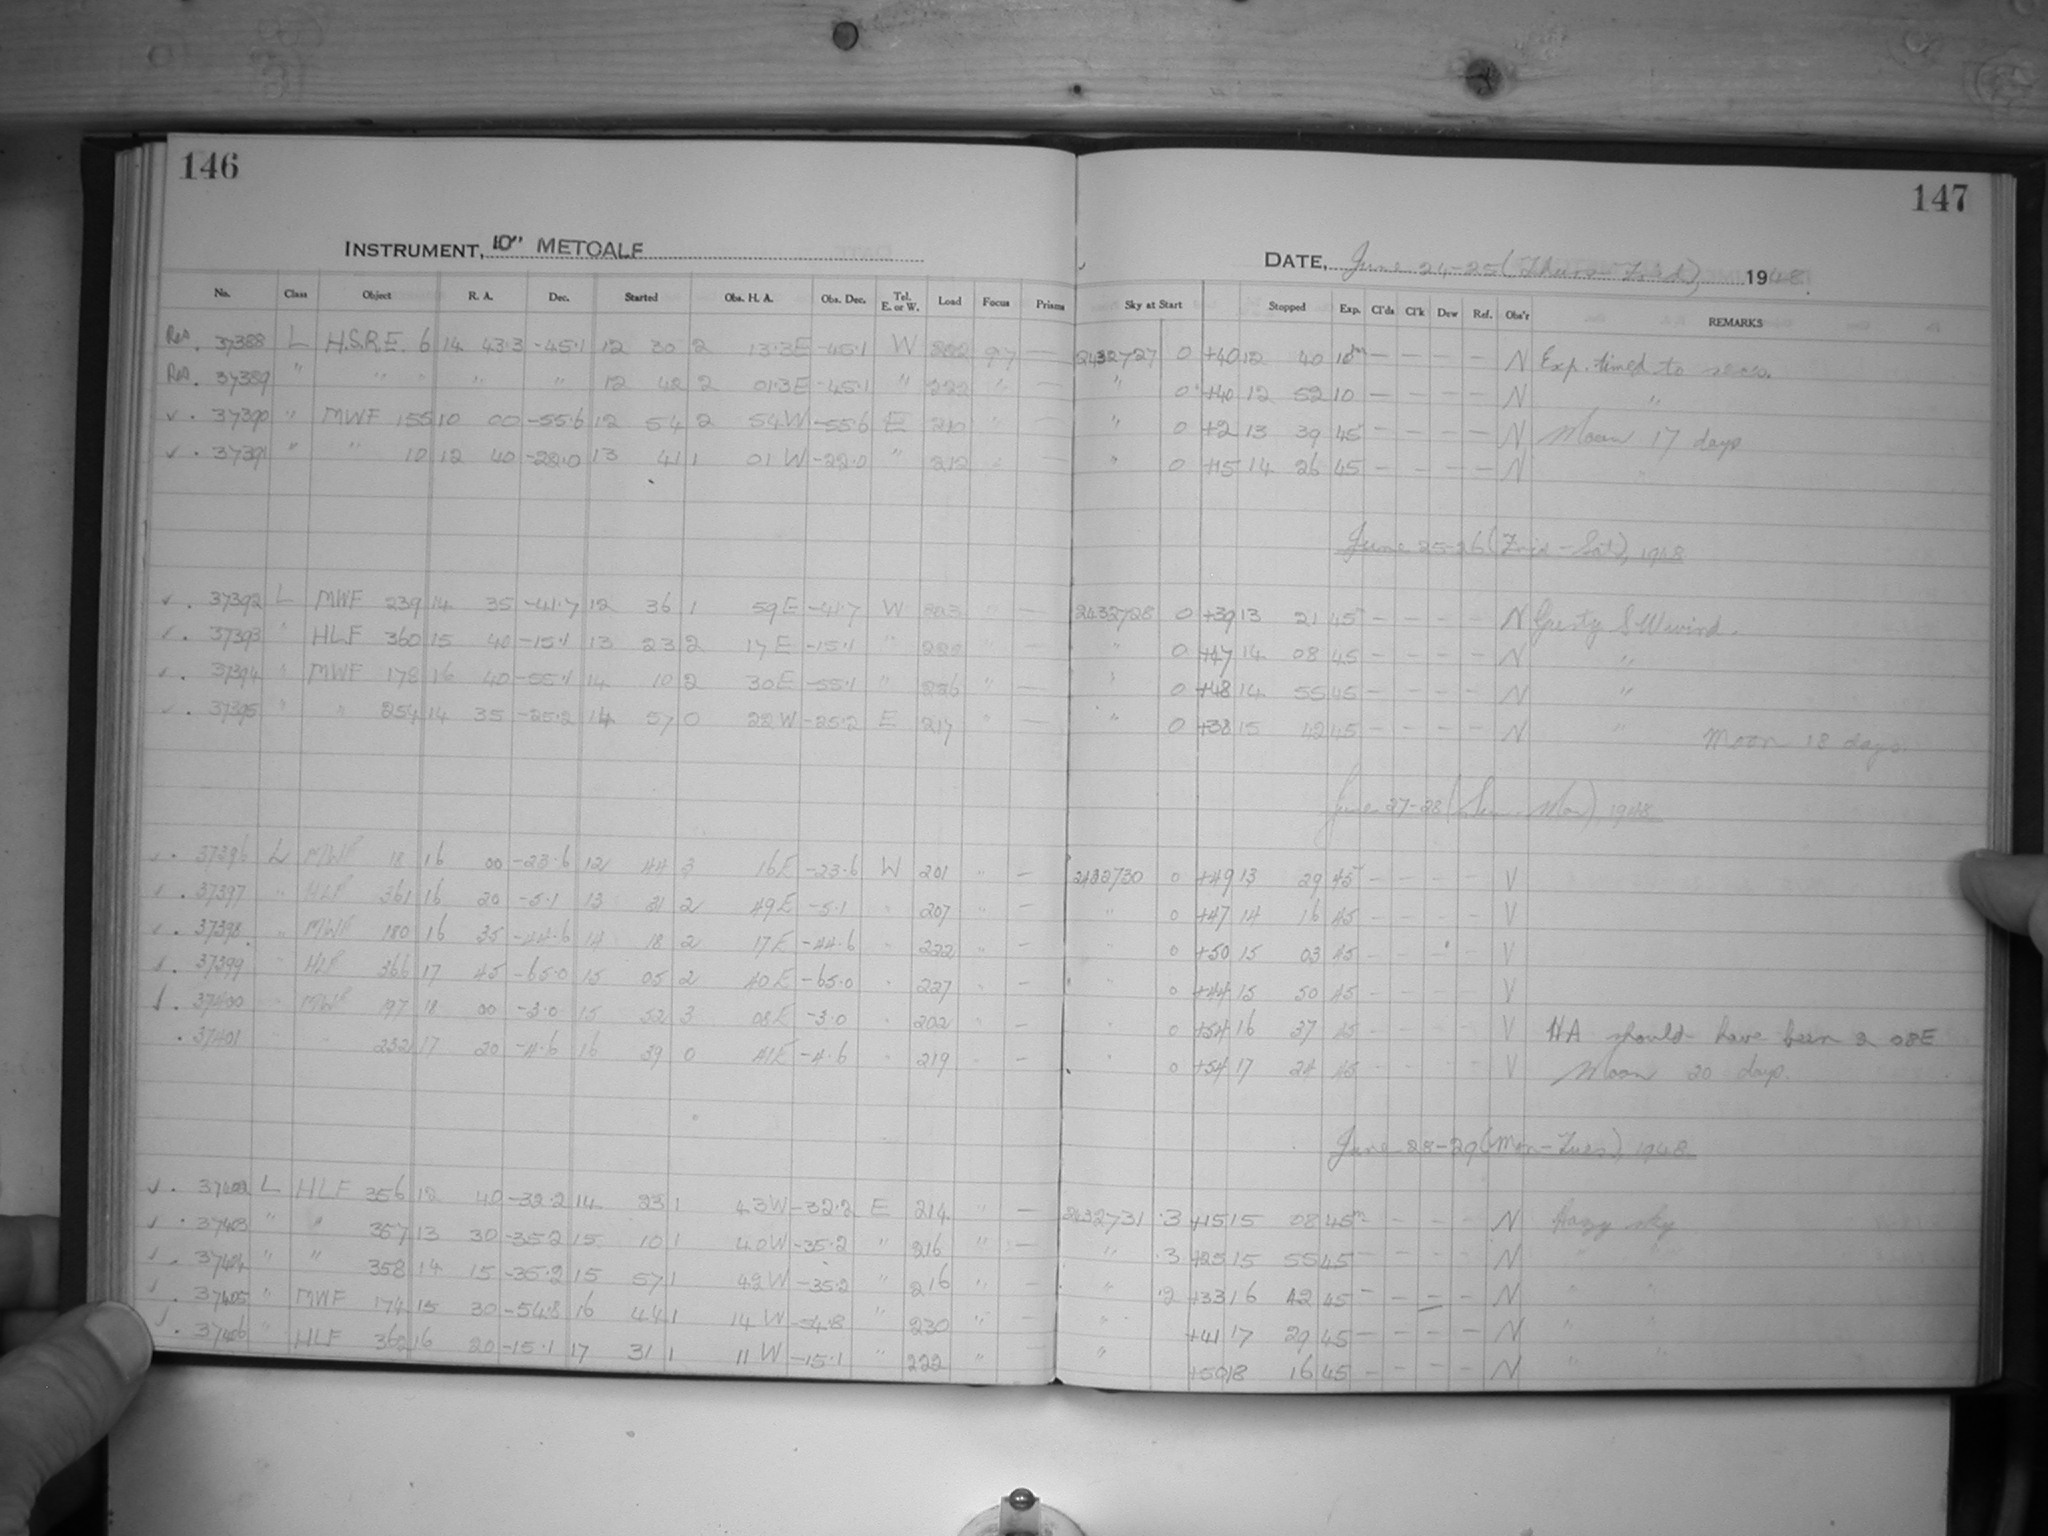 146
INSTRUMENT, 10" METCALF
No. Class Object R. A. Dec. Started Obs. H. A. Obs. Dec. Tel. E. or W. Load Focus Prisms
37388 L H.S.R.E. 6 14 43.3 -45.1 12 30 2 13.3E -45.1 W 97 —
37389 " " " " " 12 42 2 01.3E -45.1 " 222 " —
✓ . 37390 " MWF 155 10 00 -55.6 12 54 2 54W -55.6 E 210 " —
✓ . 37391 " " 10 12 40 -22.0 13 41 1 01 W -22.0 " 212 " —
✓ . 37392 L MWF 239 14 35 -41.7 12 36 1 59E -41.7 W 203 " —
✓ . 37393 " HLF 360 15 40 -15.1 13 23 2 17E -15.1 " " —
✓ . 37394 " MWF 178 16 40 -55.1 14 10 2 30E -55.1 " 226 " —
✓ . 37395 " " 254 14 35 -25.2 14 57 0 22W -25.2 E 217 " —
✓ . 37396 L MWF 18 16 00 -23.6 12 44 3 16E -23.6 W 201 " —
✓ . 37397 " HLF 361 16 20 -5.1 13 31 2 49E -5.1 " 207 " —
✓ . 37398 " MWF 180 16 35 -44.6 14 18 2 17E -44.6 " 222 " —
✓ . 37399 " HLF 366 17 45 -65.0 15 05 2 40E -65.0 " 227 " —
37400 " MWF 197 18 00 -3.0 15 52 3 08E -3.0 " 202 " —
. 37401 " 232 17 20 -4.6 16 39 0 41E -4.6 " 219 " —
✓ . 37402 L HLF 356 12 40 -32.2 14 23 1 43W -32.2 E 214 " —
✓ . 37403 " " 357 13 30 -35.2 15 10 1 40W -35.2 " 216 " —
✓ . 37404 " " 358 14 15 -35.2 15 57 1 42W -35.2 " 216 " —
✓ . 37405 " MWF 174 15 30 -54.8 16 44 1 14W -54.8 " 230 " —
✓ . 37406 " HLF 362 16 20 -15.1 17 31 1 11W -15.1 " 222 " —
147
DATE, June 24-25 (Thurs-Frid), 1948.
Sky at Start Stopped Exp. Cl'ds Cl'k Dew Ref. Obs'r REMARKS
2432727 0 +40 12 40 10m — — — — N Exp. timed to secs.
" 0 +40 12 52 10 — — — — N "
" 0 +2 13 39 45 — — — — N Moon 17 days
" 0 +15 14 26 45 — — — — N "
June 25-26 (Frid-Sat), 1948
2432728 0 +39 13 21 45 — — — — N Gusty SW wind.
" 0 +47 14 08 45 — — — — N "
" 0 +48 14 55 45 — — — — N "
" 0 +38 15 42 45 — — — — N " Moon 18 days.
June 27-28 (Sun-Mon), 1948
2432730 0 +49 13 29 45 — — — — V
" 0 +47 14 16 45 — — — — V
" 0 +50 15 03 45 — — — — V
" 0 +44 15 50 45 — — — — V
" 0 +54 16 37 45 — — — — V HA should have been 2 08E
" 0 +54 17 24 45 — — — — V Moon 20 days.
June 28-29 (Mon-Tues), 1948
2432731 .3 +15 15 08 45m — — — — N Hazy sky
" .3 +25 15 55 45 — — — — N " "
" .2 +33 16 42 45 — — — — N " "
" +41 17 29 45 — — — — N " "
" +50 18 16 45 — — — — N " "